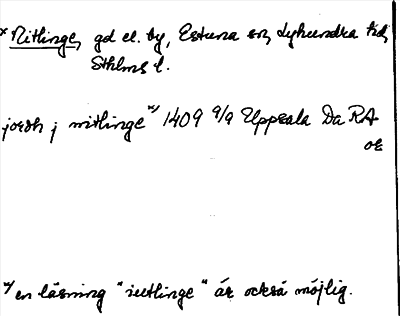 * Nitlinge, gd el. by, Estuna sn, Lyhundra hd,
Sthlms l.
jordh j nitlinge *) 1409 9/9 Uppsala Da RA
oe
*) en läsning "iutlinge" är också möjlig.